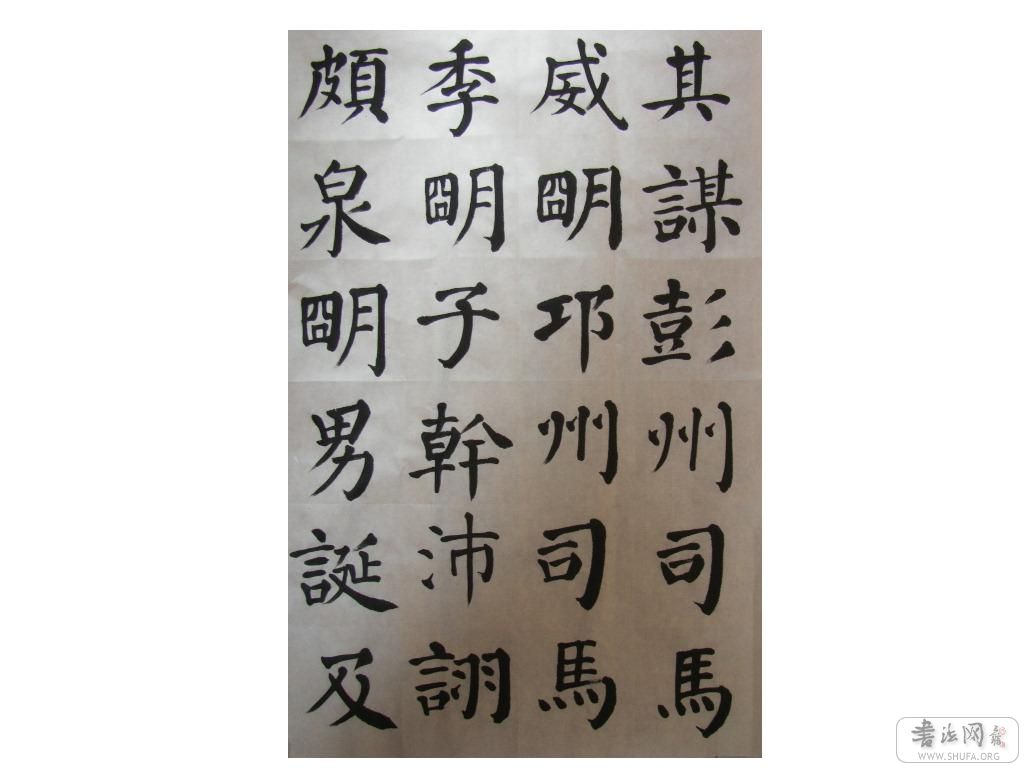 其謀彭州司馬
威朙邛州司馬
季朙子幹沛詡
頗泉朙男誕及
書法网
WWW.SHUFA.ORG